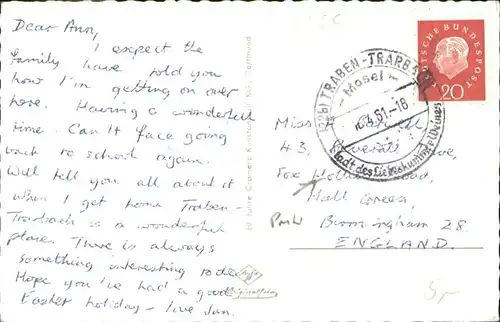 Dear Ann,
I expect the
family have told you
how I'm getting on over
here. Having a wonderful
time. Can't face going
back to school again.
Will tell you all about it
when I get home. Traben-
Trarbach is a wonderful
place. There is always
something interesting to do.
Hope you've had a good
Easter holiday - love Jan.
Cramers Kunstanstalt KG., Dortmund
Agfa
Originalfoto
(22b) TRABEN-TRARBACH
- Mosel -
61-18
Stadt des
Weines
DEUTSCHE BUNDESPOST
20
Miss
43,
Fox Road,
Hall Green,
Birmingham 28.
ENGLAND.